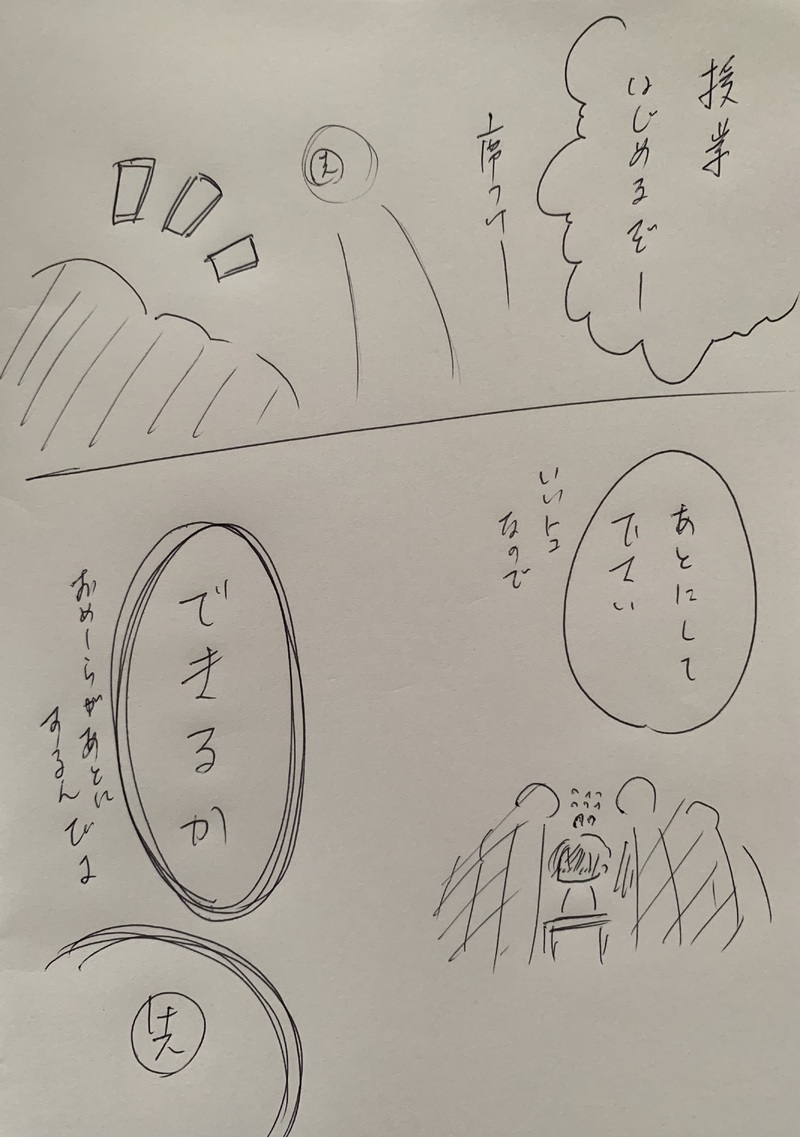 授業
はじめるぞー
席つけー
先
あとにして
下さい
いいトコ
なので
できるか
おめーらがあとに
するんだよ
先